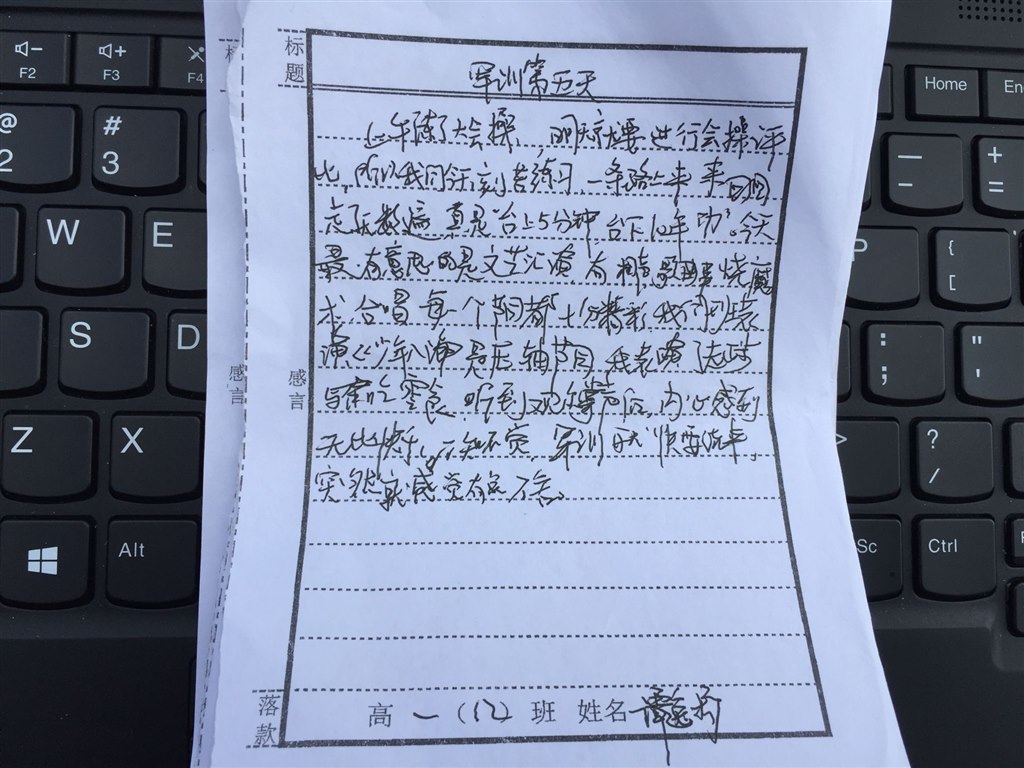 标题
军训第五天
上午练了大会操,明天就要进行会操评
比,所以我们今天刻苦练习,一条路上来来回回
忘了数遍,真是"台上5分钟,台下10年功"。今天
最有意思的是文艺汇演,有相声
合唱,每个节目都十分精彩,我们
演《少年》是压轴节目,我表演了
零食,听到观众掌声后,内心感到
无比快乐。不知不觉,军训明天快要结束,
突然就感觉有点不舍。
感言
落款
高一(12)班 姓名
F2
F3
F4
@
2
#
3
W
E
S
D
Z
X
Alt
Home
En
—
-
+
=
P
{
[
:
;
"
'
>
?
/
Sc
Ctrl
标
感言